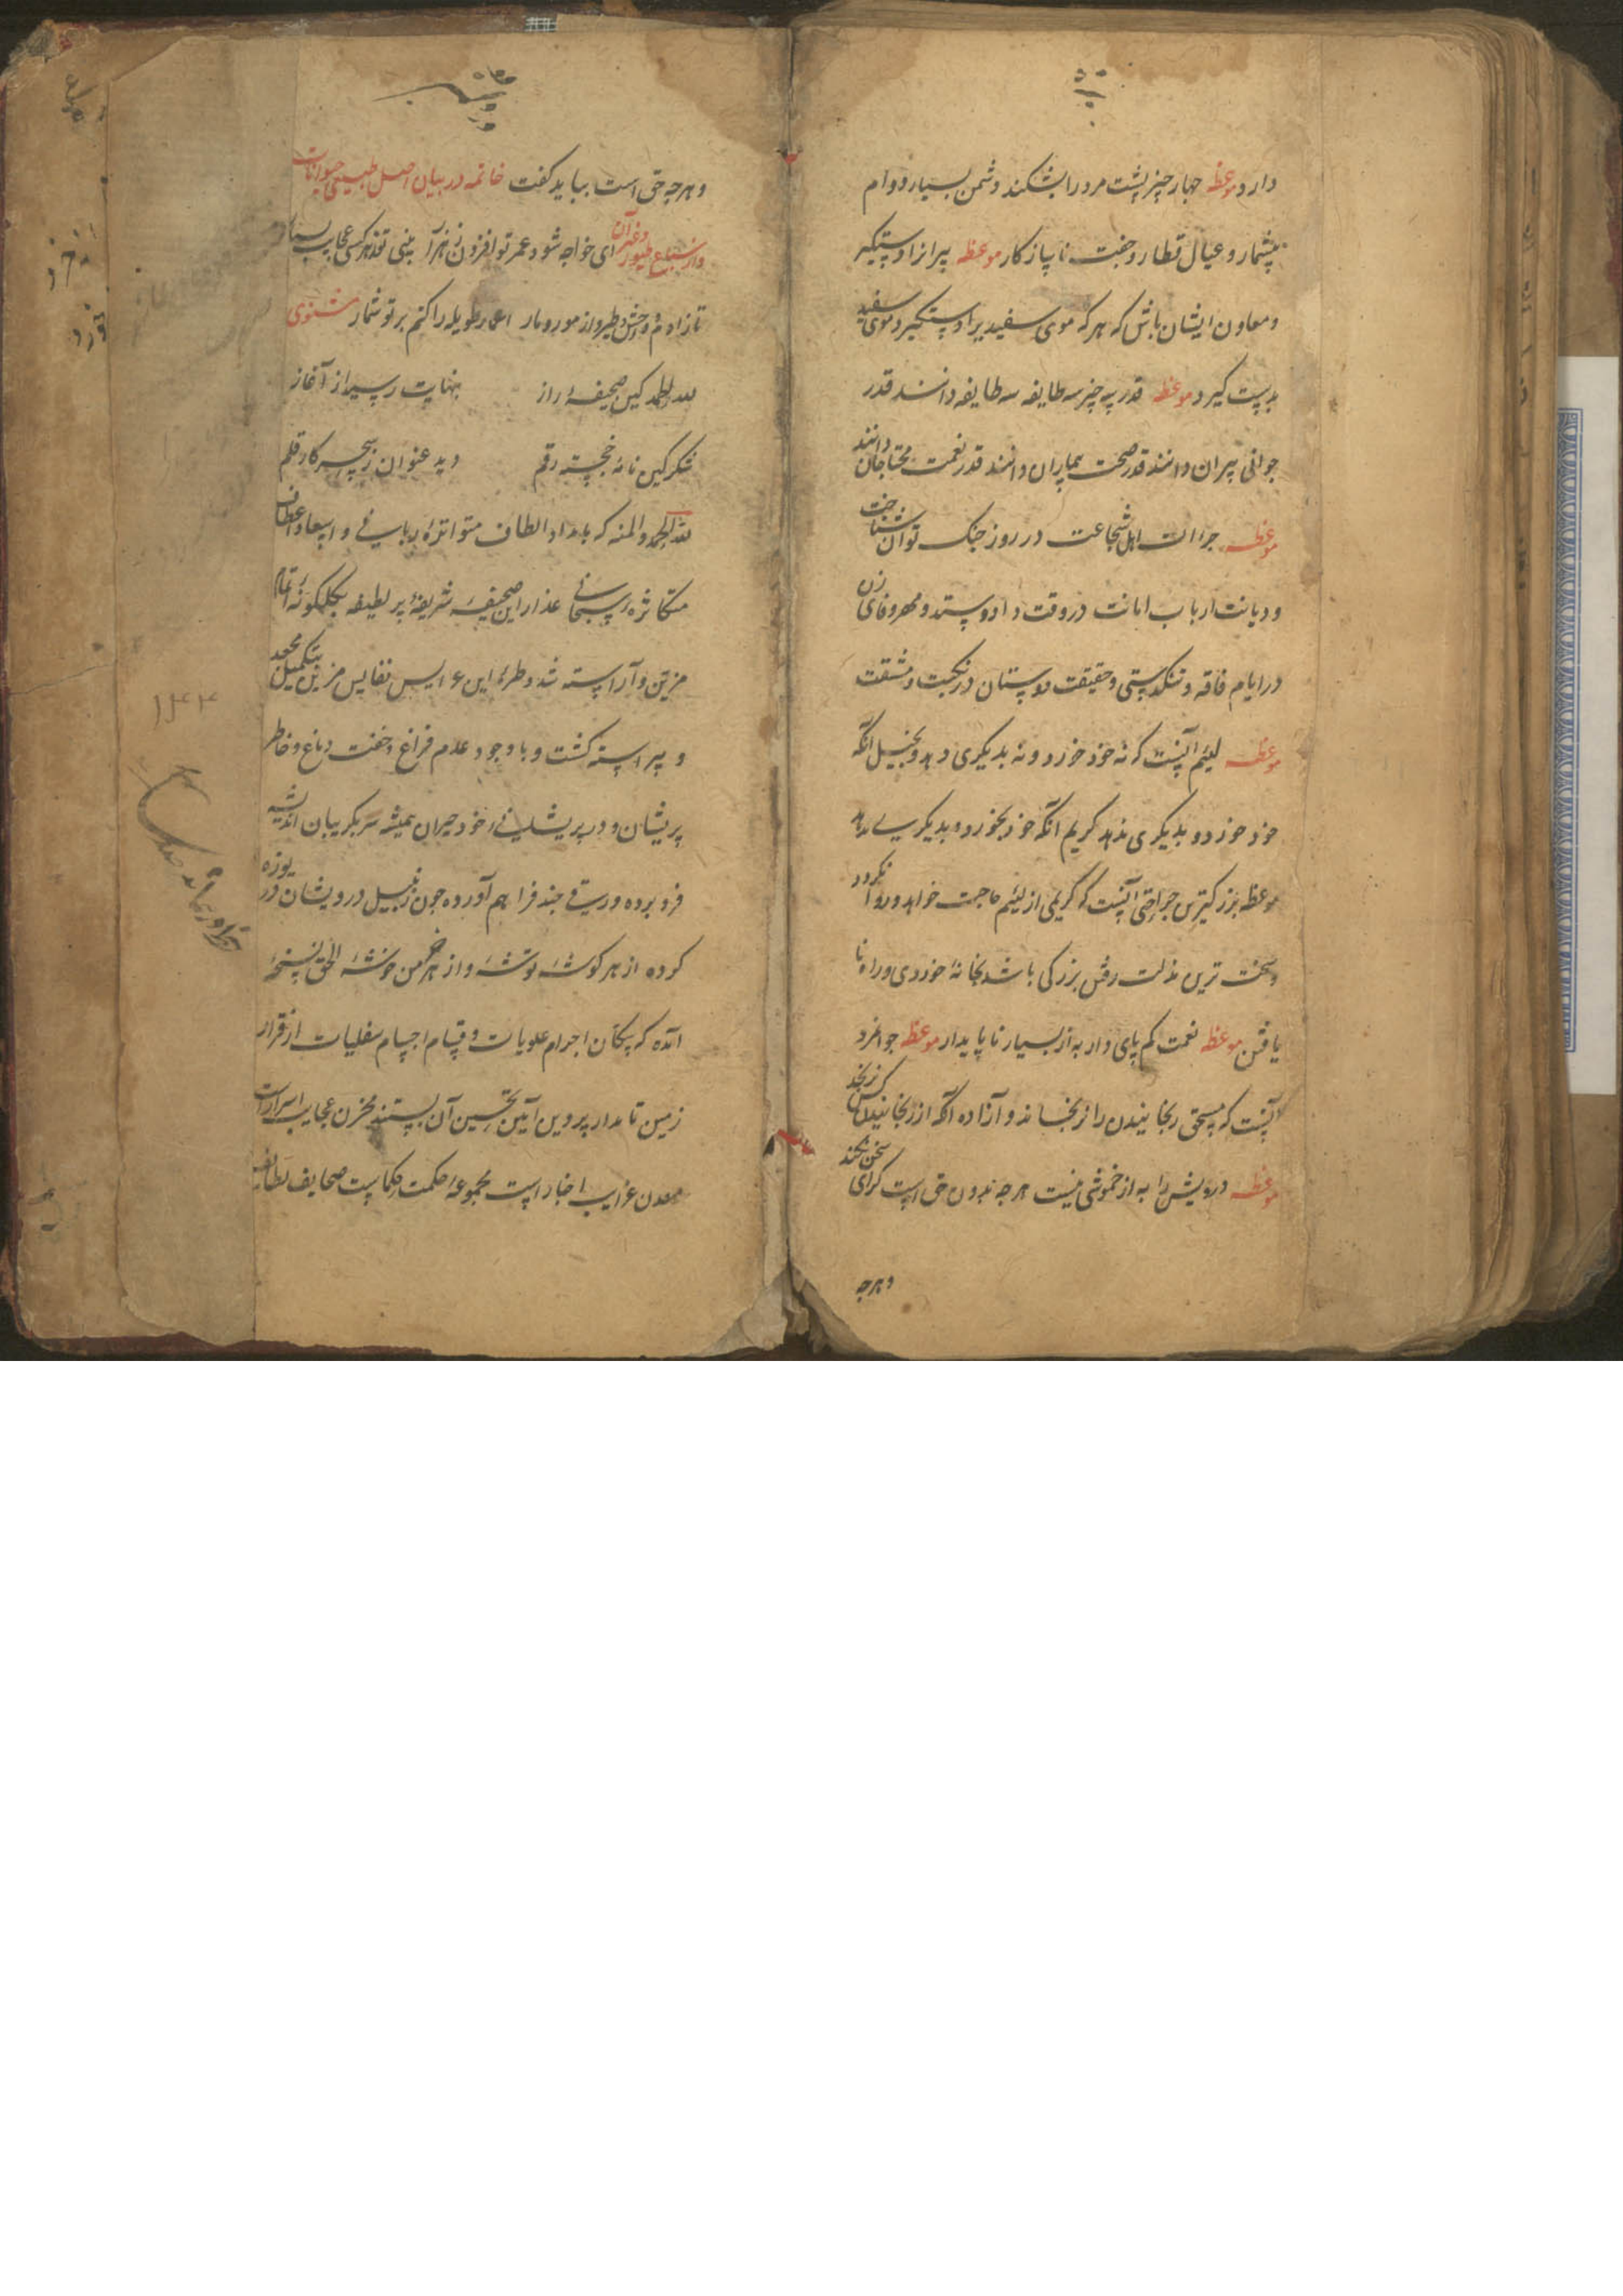 دارد موعظه چهار چیز پشت مرد را بشکند دشمن بسیار و وام
بیشمار و عیال قطار و جفت ناسازکار موعظه پیرانرا دستگیر
و معاون ایشان باش که هر که موی سفید را دستگیرد موی سفید
قدر سه چیز سه طایفه دانند قدر
جوانی پیران دانند قدر صحت بیماران دانند قدر نعمت محتاجان دانند
موعظه جرات اهل شجاعت در روز جنک توان شناخت
و دیانت ارباب امانت در وقت داد و ستد و مهر و وفای زن
در ایام فاقه و تنکدستی و حقیقت دوستان در نکبت و مشقت
موعظه لئیم آنست که نه خود خورد و نه بدیکری دهد و بخیل آنکه
خود خورد و بدیکری ندهد کریم آنکه خود بخورد و بدیکری بدهد
موعظه بزرکترین جراحتی آنست که کریمی از لئیم حاجت خواهد و روا نکردد
و سخت ترین مذلت رفتن بزرکی باشد بخانهٔ خوردی و راه نا
یافتن موعظه نعمت کم پای دار به از بسیار ناپایدار موعظه جوانمرد
آنست که مستحق رنجانیدن را نرنجاند و آزاده آنکه از رنجانیدن کس نرنجد
موعظه درویش را به از خموشی نیست هر چه بدون حق است کرای سخن نکند
و هرچه
و هرچه حق است بباید کفت خاتمه در بیان اصل طبیعی حیوانات
و از سباع و طیور و غیر آن ای خواجه شود عمر تو افزون ز هزار بینی تو ز هر کسی عجایب بسیار
تا زادم و وحش و طیر و از مور و مار اعمار طویله را کنم بر تو شمار مثنوی
لله الحمد کین صحیفهٔ راز بنهایت رسید از آغاز
شکر کین نامهٔ خجسته رقم دید عنوان ز سحر کار قلم
لله الحمد و المنه که بامداد الطاف متواتره ربانی و اسعاد اعطاف
متکاثره سبحانی عذار این صحیفه شریفهٔ پر لطیفه بکلکونهٔ اتمام
مزین و آراسته شد و طرهٔ این عرایس نفایس مزین بتکمیل
و پیراسته کشت و با وجود عدم فراغ و خفت دماغ و خاطر
پریشان و در پریشانی خود حیران همیشه سر بکریبان اندیشه
فرو برده ورقی چند فراهم آورده چون زنبیل درویشان دریوزه
کرده از هر کوشهٔ توشهٔ و از هر خرمن خوشهٔ الحق نسخهٔ
آمده که سکان اجرام علویات و قسام اجسام سفلیات از قرار
زمین تا مدار پروین آیین تحسین آن بستند مخزن عجایب اسرار است
معدن غرایب اخبار است مجموعهٔ حکمت حکماست صحایف لطایف